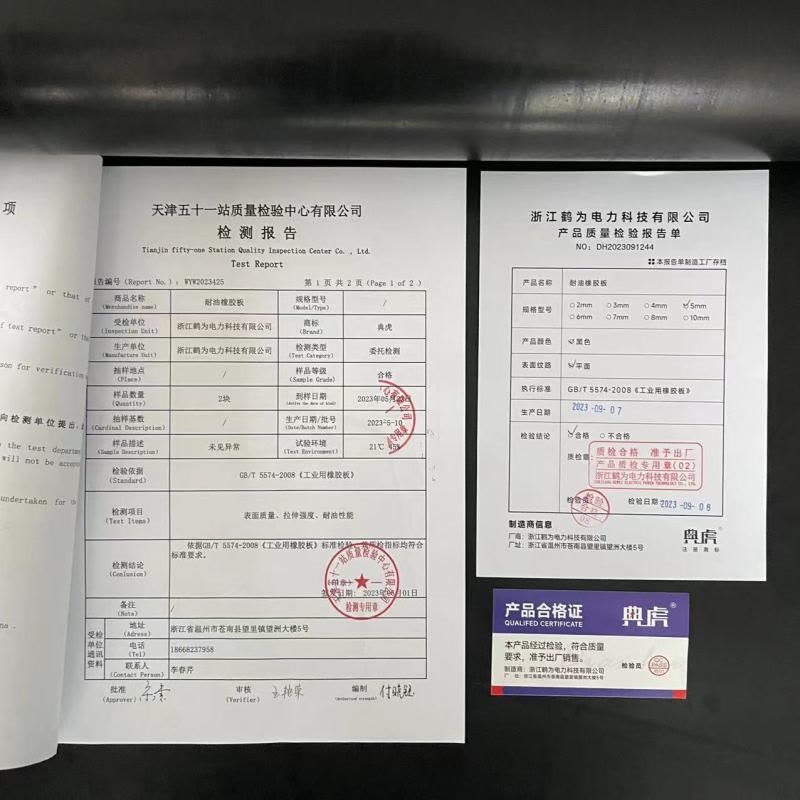 项
report" or that of
f test report" or the
son for verification
向检测单位提出,
the test departme
will not be accep
undertaken for th
天津五十一站质量检验中心有限公司
检测报告
Tianjin fifty-one Station Quality Inspection Center Co., Ltd.
Test Report
报告编号 (Report No.): WYW2023425 第 1 页 共 2 页 (Page 1 of 2)
商品名称 (Merchandise name) 耐油橡胶板 规格型号 (Model/Type) /
受检单位 (Inspection Unit) 浙江鹤为电力科技有限公司 商标 (Brand) 典虎
生产单位 (Manufacture Unit) 浙江鹤为电力科技有限公司 检测类型 (Test Category) 委托检测
抽样地点 (Place) / 样品等级 (Sample Grade) 合格
样品数量 (Quantity) 2块 到样日期 2023年05月22日
抽样基数 (Cardinal Description) / 生产日期/批号 (Date/Batch Number) 2023-5-10
样品描述 (Sample Description) 未见异常 试验环境 (Test Environment) 21℃ 45%
检验依据 (Standard) GB/T 5574-2008《工业用橡胶板》
检测项目 (Test Items) 表面质量、拉伸强度、耐油性能
检测结论 (Conlusion) 依据GB/T 5574-2008《工业用橡胶板》标准检验,所检指标均符合
标准要求。
签发日期: 2023年06月01日
检测专用章
备注 (Note) /
受检单位通讯资料
地址 (Adress) 浙江省温州市苍南县望里镇望洲大楼5号
电话 (Tel) 18668237958
联系人 (Contact Person) 李春芹
批准 (Approver): 审核 (Verifier) 编制
浙江鹤为电力科技有限公司
产品质量检验报告单
NO: DH2023091244
本报告单制造工厂存档
产品名称 耐油橡胶板
规格型号 ○2mm ○3mm ○4mm ✓5mm
○6mm ○7mm ○8mm ○10mm
产品颜色 ✓黑色
表面纹路 ✓平面
执行标准 GB/T 5574-2008《工业用橡胶板》
生产日期 2023-09-07
检验结论 ✓合格 ○不合格
质检章:
质检合格 准予出厂
产品质检专用章(02)
浙江鹤为电力科技有限公司
检验员: 检验日期: 2023-09-08
检验
合格
制造商信息
厂商:浙江鹤为电力科技有限公司
厂址:浙江省温州市苍南县望里镇望洲大楼5号
典虎®
注册商标
产品合格证
QUALIFED CERTIFICATE
典虎®
本产品经过检验,符合质量
要求,准予出厂销售。
检验员
PASS
制造商:浙江鹤为电力科技有限公司
厂 址:浙江省温州市苍南县望里镇望洲大楼5号